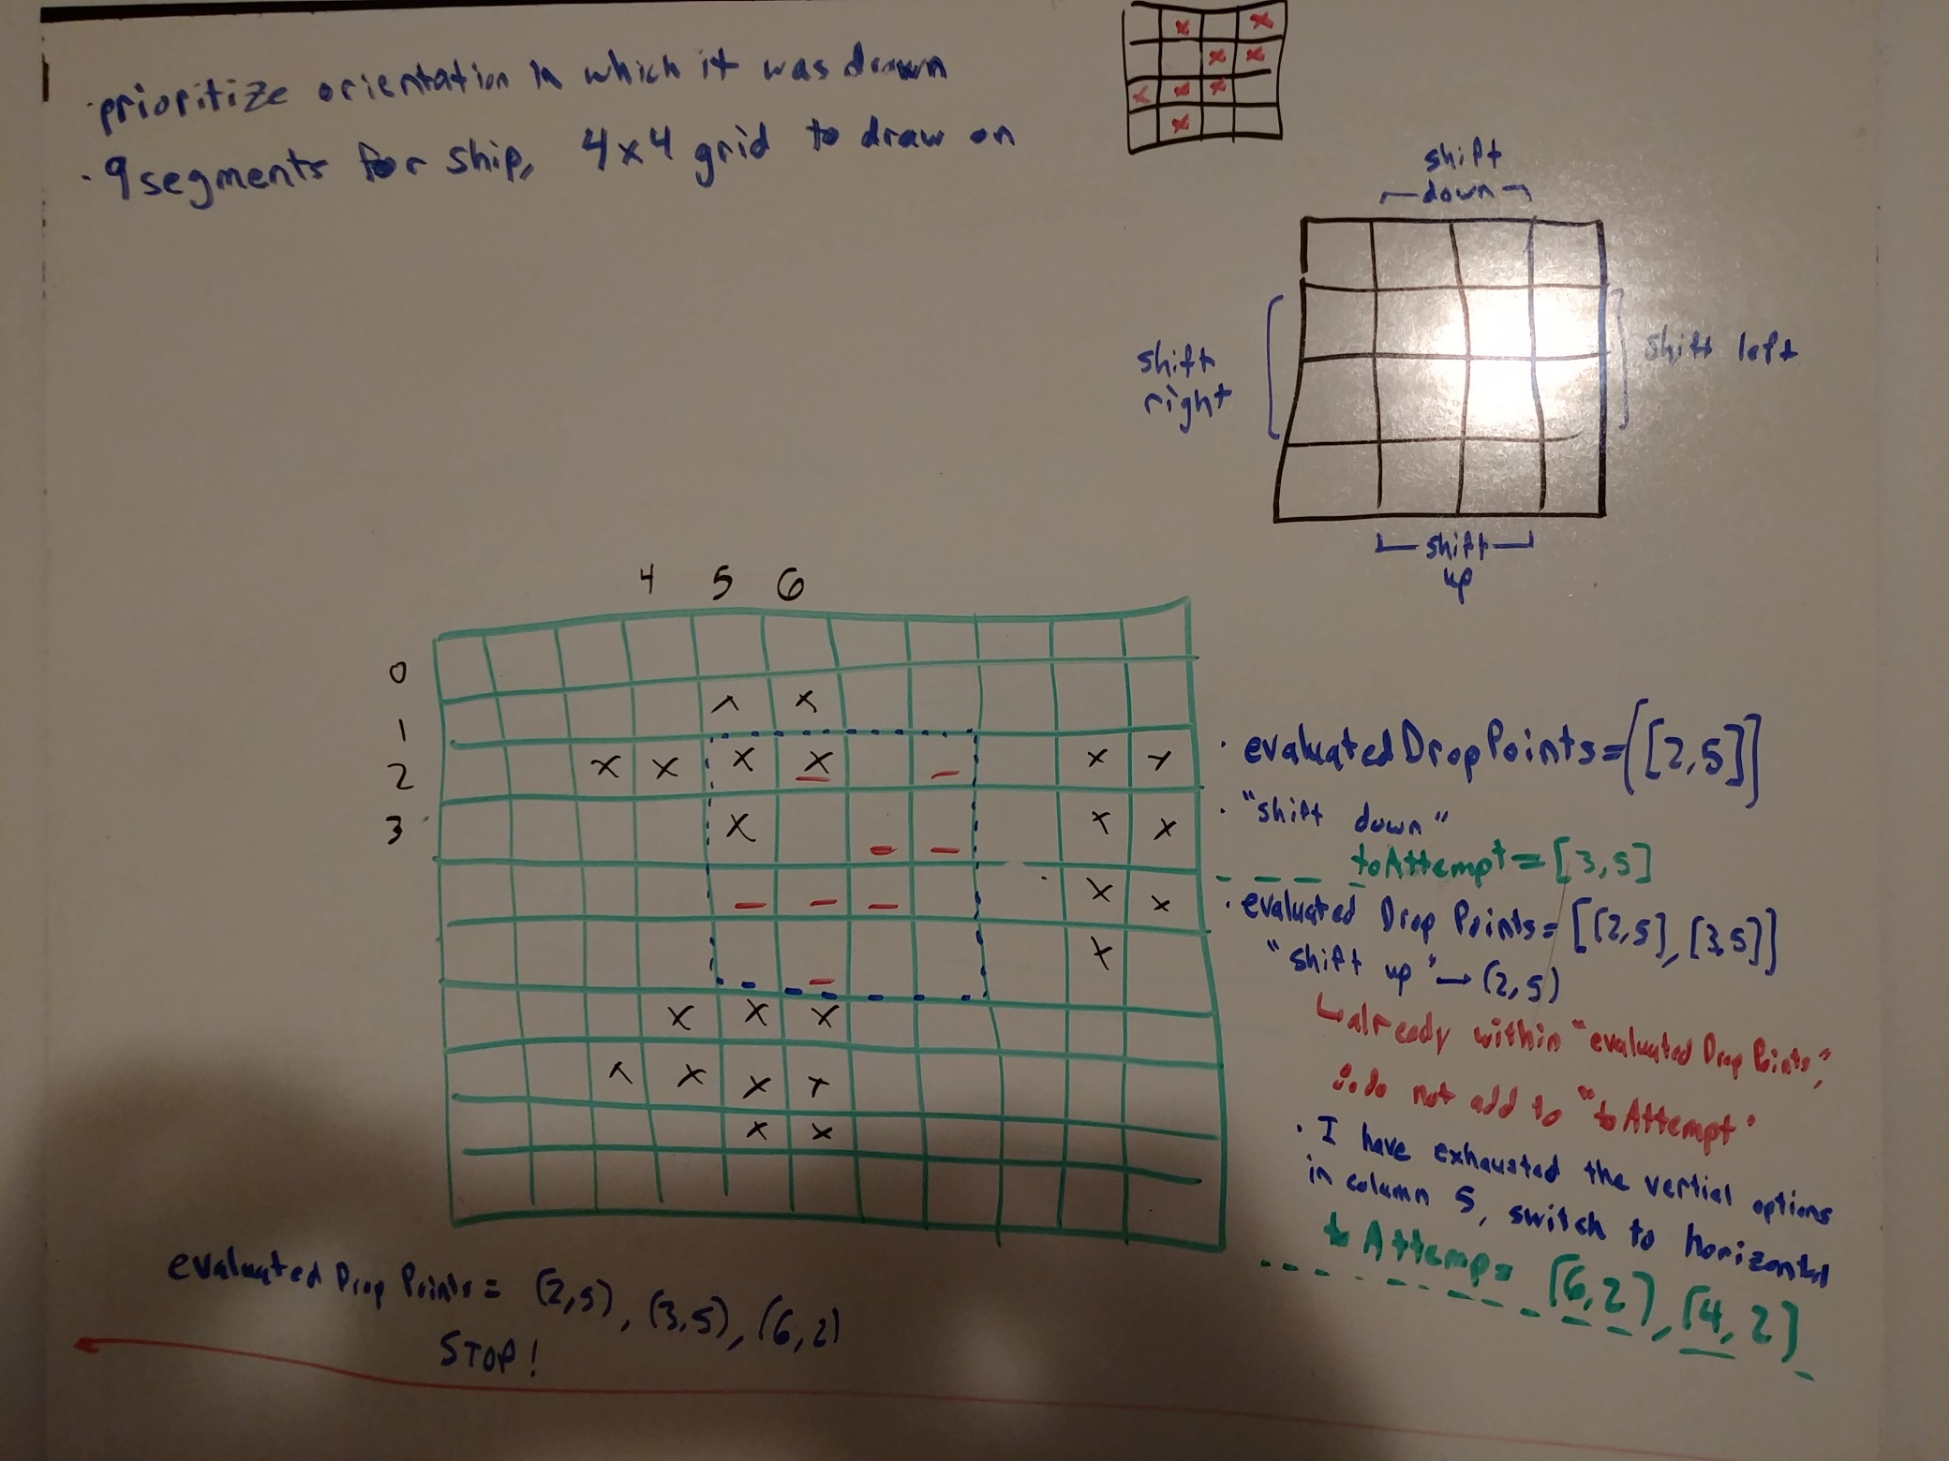 ·prioritize orientation in which it was drawn
·9 segments for ship, 4x4 grid to draw on
shift
down
shift
right
shift left
shift
up
4 5 6
0
1
2
3
· evaluatedDropPoints=[[2,5]]
· "shift down"
toAttempt=[3,5]
· evaluated Drop Points=[[2,5],[3,5]]
"shift up"→(2,5)
↳already within "evaluated Drop Points",
∴do not add to "toAttempt"
· I have exhausted the vertial options
in column 5, switch to horizontal
toAttemp= [6,2], [4,2]
evaluated Drop Points= (2,5), (3,5), (6,2)
STOP!